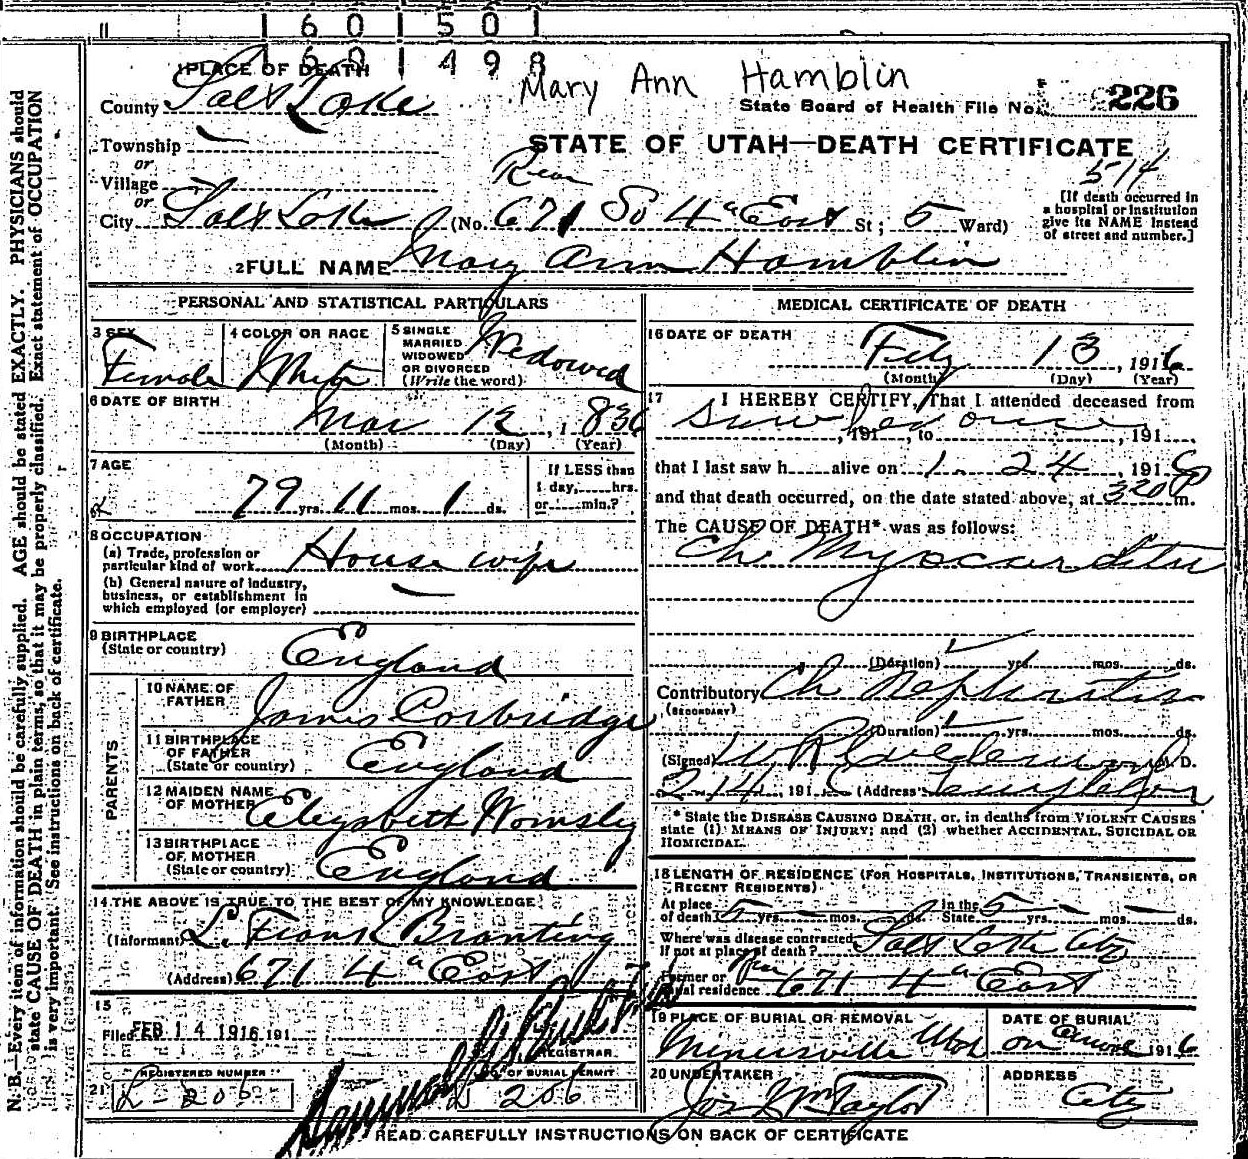 1 6 0 1 5 0 1
1 6 0 1 4 9 8
Mary Ann Hamblin
1 PLACE OF DEATH
County Salt Lake
State Board of Health File No. 226
Township —
STATE OF UTAH—DEATH CERTIFICATE
or
Village
Rear
514
or
City Salt Lake (No. 671 So 4th East St; 5 Ward)
[If death occurred in
a hospital or institution
give its NAME instead
of street and number.]
2 FULL NAME Mary Ann Hamblin
PERSONAL AND STATISTICAL PARTICULARS
3 SEX
Female
4 COLOR OR RACE
White
5 SINGLE
MARRIED
WIDOWED
OR DIVORCED
(Write the word)
Widowed
6 DATE OF BIRTH
Mar 12, 1836
(Month) (Day) (Year)
7 AGE
79 yrs. 11 mos. 1 ds.
If LESS than
1 day,......hrs.
or......min.?
8 OCCUPATION
(a) Trade, profession or
particular kind of work House wife
(b) General nature of industry,
business, or establishment in
which employed (or employer) —
9 BIRTHPLACE
(State or country) England
PARENTS
10 NAME OF
FATHER James Corbridge
11 BIRTHPLACE
OF FATHER
(State or country) England
12 MAIDEN NAME
OF MOTHER Elizabeth Womsley
13 BIRTHPLACE
OF MOTHER
(State or country) England
14 THE ABOVE IS TRUE TO THE BEST OF MY KNOWLEDGE
(Informant) L. Frank Branting
(Address) 671 4th East
15
Filed FEB 14 1916 191
REGISTRAR
REGISTERED NUMBER
NO. OF BURIAL PERMIT
21 L-206
L 206
MEDICAL CERTIFICATE OF DEATH
16 DATE OF DEATH
Feby 13, 1916
(Month) (Day) (Year)
17 I HEREBY CERTIFY, That I attended deceased from
saw her once, 191, to, 191
that I last saw h alive on 1-24, 1916
and that death occurred, on the date stated above, at 320 P m.
The CAUSE OF DEATH* was as follows:
Ch Myocarditis
(Duration) yrs. mos. ds.
Contributory Ch Nephritis
(SECONDARY)
(Duration) yrs. mos. ds.
(Signed) M. D.
2-14, 1916 (Address) Templeton
* State the DISEASE CAUSING DEATH, or, in deaths from VIOLENT CAUSES
state (1) MEANS OF INJURY; and (2) whether ACCIDENTAL, SUICIDAL OR
HOMICIDAL.
18 LENGTH OF RESIDENCE (FOR HOSPITALS, INSTITUTIONS, TRANSIENTS, OR
RECENT RESIDENTS)
At place
of death 5 yrs. — mos. — ds. In the
State 5 yrs. — mos. — ds.
Where was disease contracted
If not at place of death? Salt Lake City
Former or
usual residence Rear 671 4th East
19 PLACE OF BURIAL OR REMOVAL
Minersville Utah
DATE OF BURIAL
on arrival 1916
20 UNDERTAKER
Jos Wm Taylor
ADDRESS
City
READ CAREFULLY INSTRUCTIONS ON BACK OF CERTIFICATE
N. B.—Every item of information should be carefully supplied. AGE should be stated EXACTLY. PHYSICIANS should
state CAUSE OF DEATH in plain terms, so that it may be properly classified. Exact statement of OCCUPATION
is very important. See instructions on back of certificate.